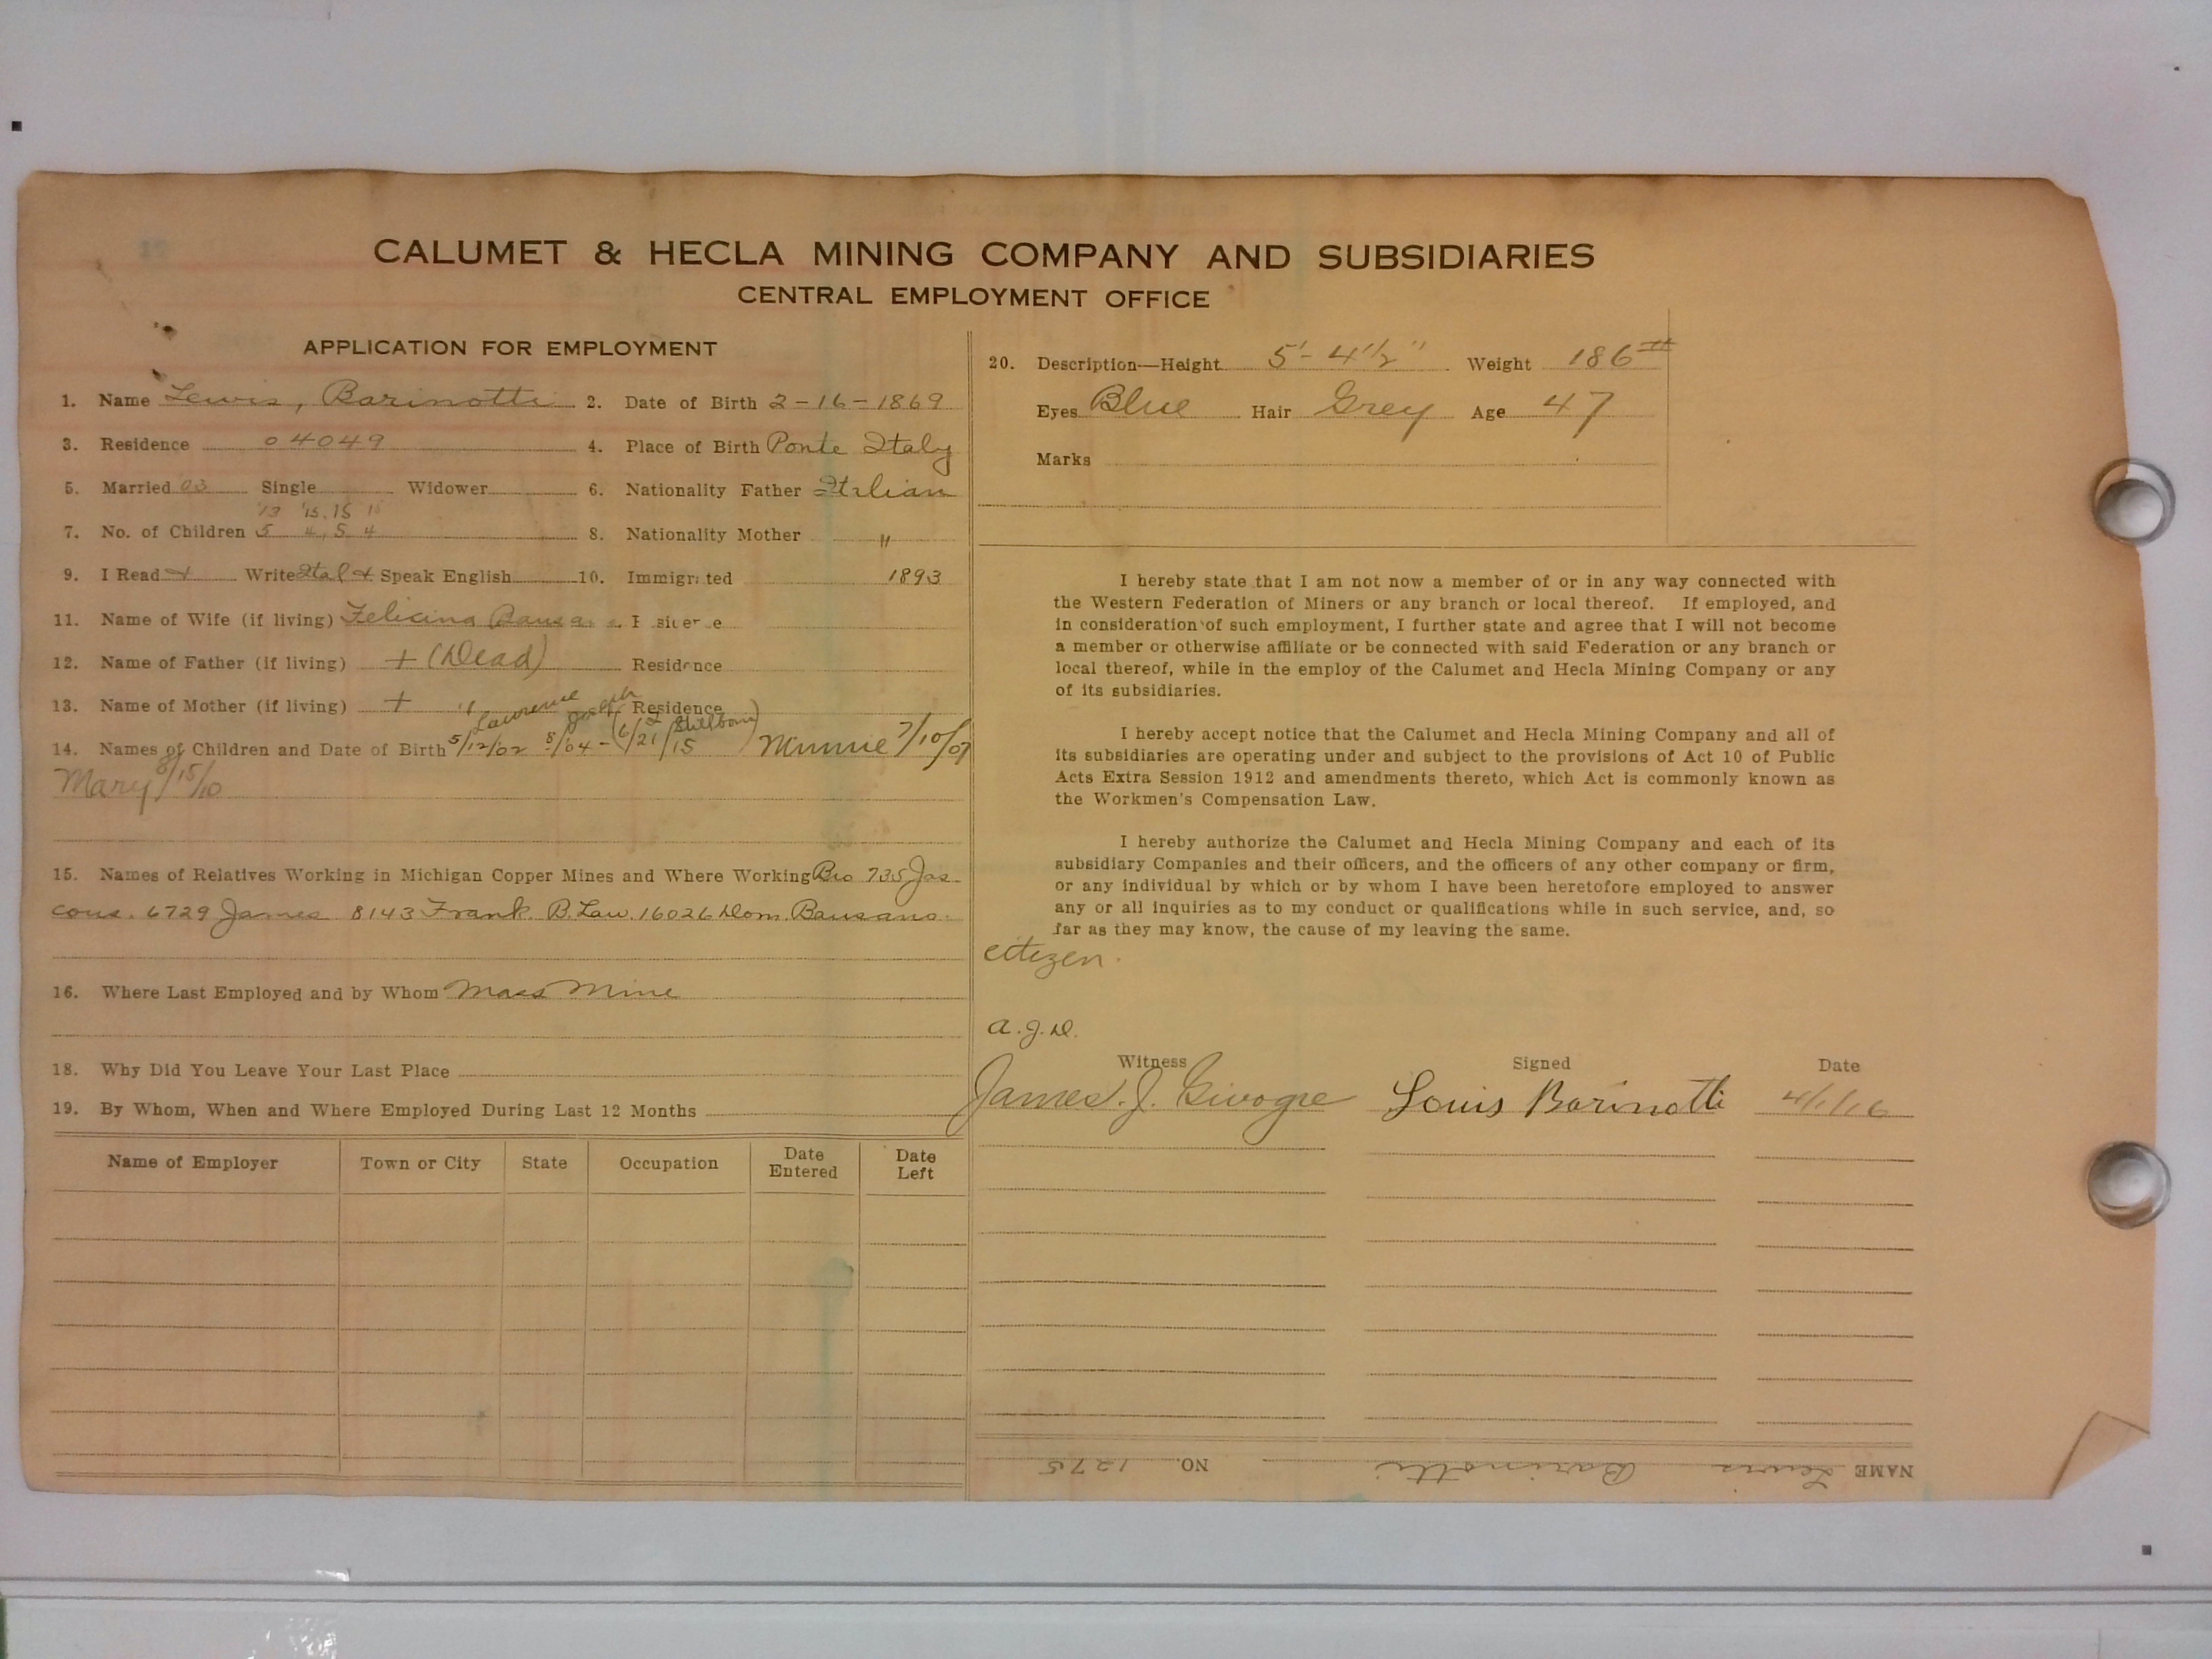 CALUMET & HECLA MINING COMPANY AND SUBSIDIARIES
CENTRAL EMPLOYMENT OFFICE
APPLICATION FOR EMPLOYMENT
1. Name Lewis, Barinotti 2. Date of Birth 2-16-1869
3. Residence 04049 4. Place of Birth Ponte Italy
5. Married 03 Single Widower 6. Nationality Father Italian
'13 '15, 15
7. No. of Children 5 4, 5 4 8. Nationality Mother "
9. I Read + Write Ital + Speak English 10. Immigrated 1893
11. Name of Wife (if living) Felicina
12. Name of Father (if living) + (Dead) Residence
13. Name of Mother (if living) + " Residence
Lawrence Joseph
14. Names of Children and Date of Birth 5/12/02 8/04 - (6/21/15 Stillborn) Minnie 7/10/07
Mary 8/15/10
15. Names of Relatives Working in Michigan Copper Mines and Where Working Bro 735 Jas
cous. 6729 James 8143 Frank. B. Law. 16026 Dom. Bausano.
16. Where Last Employed and by Whom Mass Mine
18. Why Did You Leave Your Last Place
19. By Whom, When and Where Employed During Last 12 Months
Name of Employer Town or City State Occupation Date Entered Date Left
20. Description—Height 5'-4½" Weight 186#
Eyes Blue Hair Grey Age 47
Marks
I hereby state that I am not now a member of or in any way connected with
the Western Federation of Miners or any branch or local thereof. If employed, and
in consideration of such employment, I further state and agree that I will not become
a member or otherwise affiliate or be connected with said Federation or any branch or
local thereof, while in the employ of the Calumet and Hecla Mining Company or any
of its subsidiaries.
I hereby accept notice that the Calumet and Hecla Mining Company and all of
its subsidiaries are operating under and subject to the provisions of Act 10 of Public
Acts Extra Session 1912 and amendments thereto, which Act is commonly known as
the Workmen's Compensation Law.
I hereby authorize the Calumet and Hecla Mining Company and each of its
subsidiary Companies and their officers, and the officers of any other company or firm,
or any individual by which or by whom I have been heretofore employed to answer
any or all inquiries as to my conduct or qualifications while in such service, and, so
far as they may know, the cause of my leaving the same.
citizen.
a.j.D.
Witness Signed Date
James. J. Givogre Louis Barinotti 4/1/16
NAME Lewis Barinotti NO. 1275